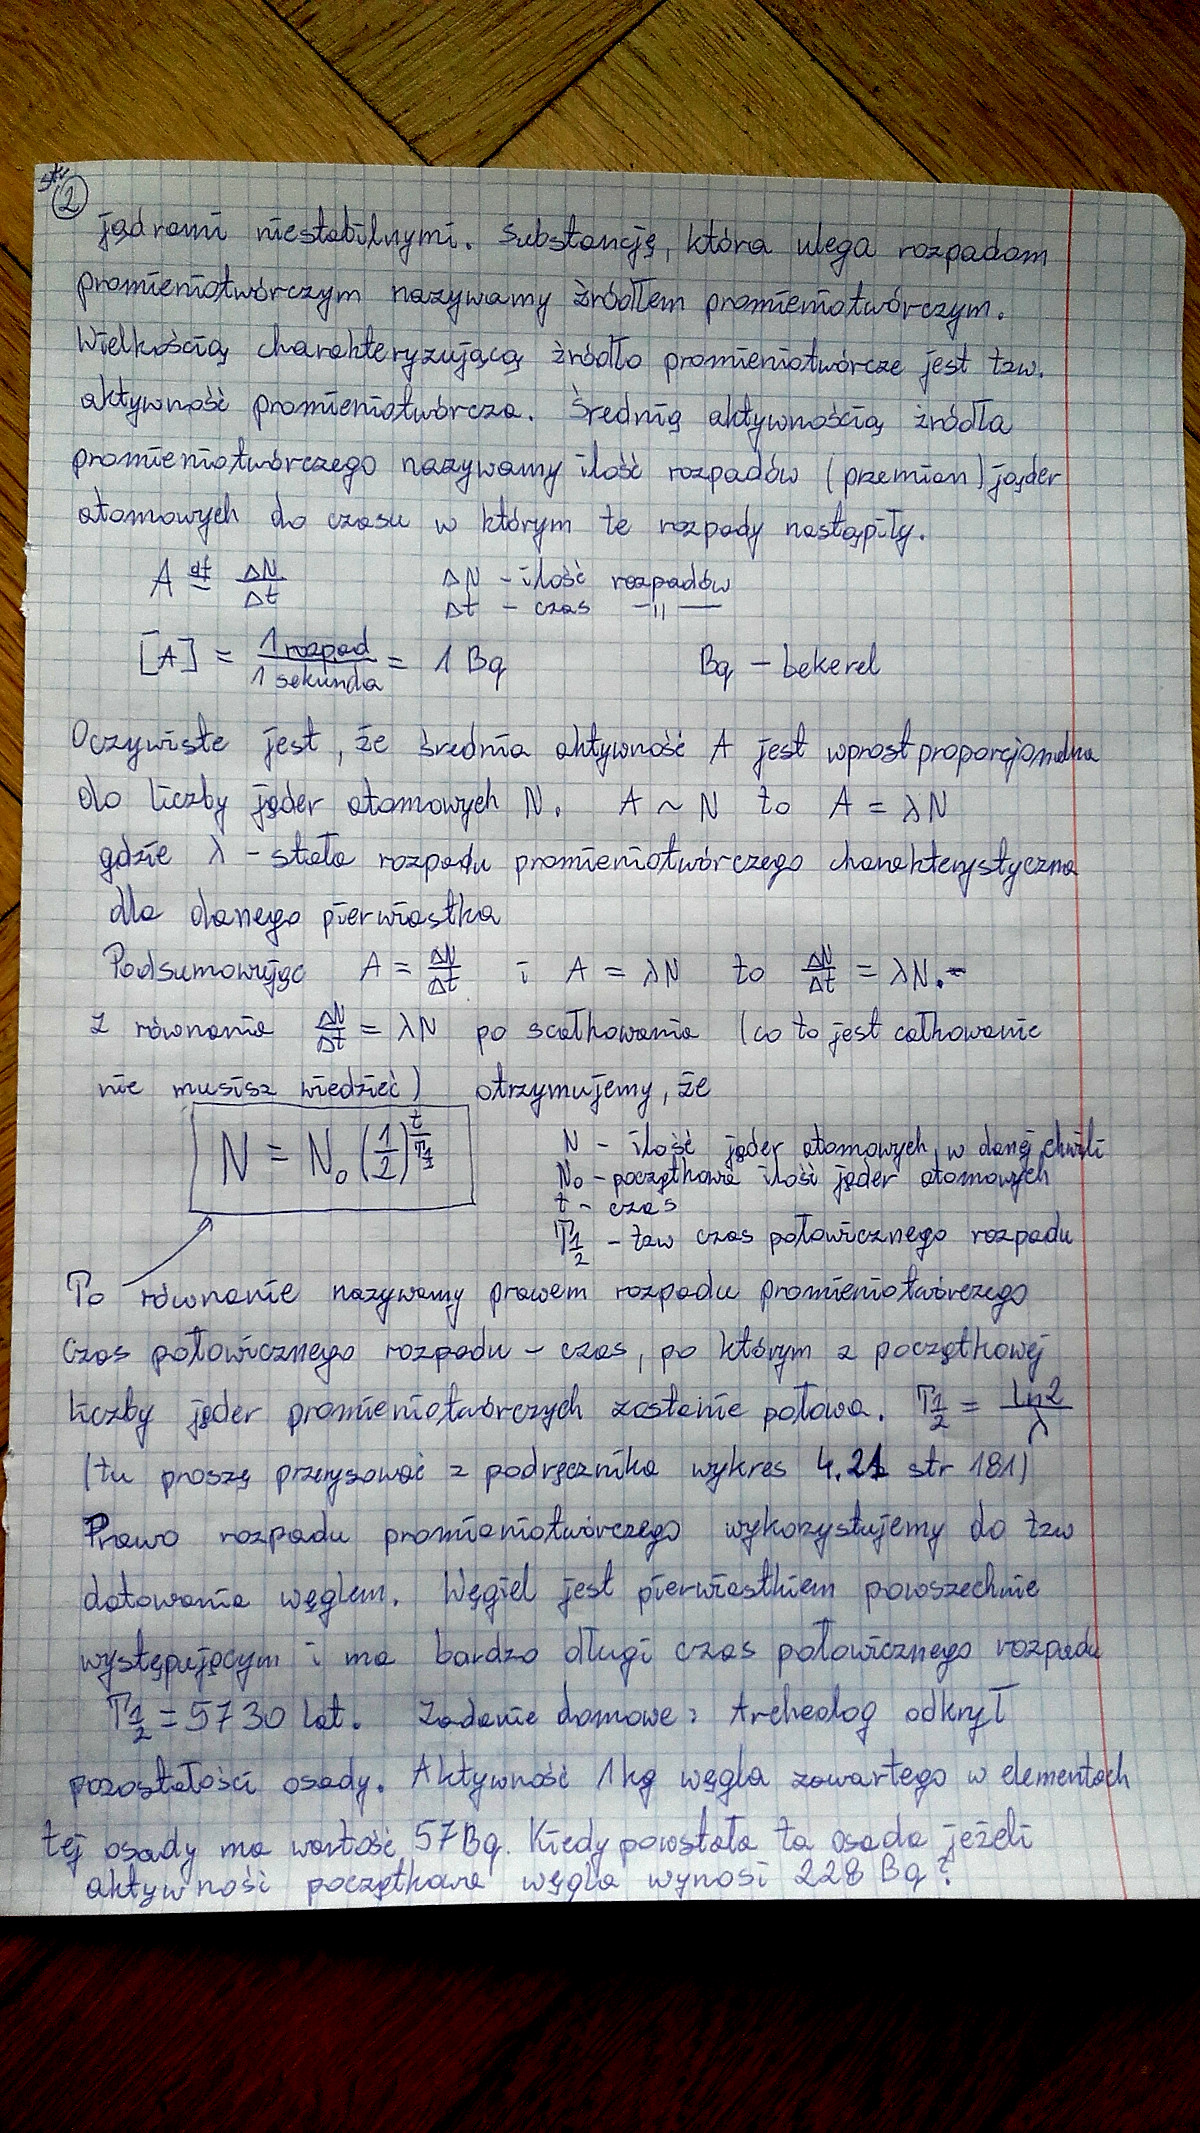 str 2
jądrami niestabilnymi. Substancję, która ulega rozpadom
promieniotwórczym nazywamy źródłem promieniotwórczym.
Wielkością charakteryzującą źródło promieniotwórcze jest tzw.
aktywność promieniotwórcza. Średnią aktywnością źródła
promieniotwórczego nazywamy ilość rozpadów (przemian) jąder
atomowych do czasu w którym te rozpady nastąpiły.
A df= ΔN/Δt ΔN – ilość rozpadów
Δt – czas –||–
[A] = 1 rozpad/1 sekunda = 1 Bq Bq – bekerel
Oczywiste jest, że średnia aktywność A jest wprost proporcjonalna
do liczby jąder atomowych N. A ~ N to A = λN
gdzie λ – stała rozpadu promieniotwórczego charakterystyczna
dla danego pierwiastka
Podsumowując A = ΔN/Δt i A = λN to ΔN/Δt = λN.
Z równania ΔN/Δt = λN po scałkowaniu (co to jest całkowanie
nie musisz wiedzieć) otrzymujemy, że
N = N₀ (1/2)^(t/T½) N – ilość jąder atomowych w danej chwili
N₀ – początkowa ilość jąder atomowych
t – czas
T½ – tzw czas połowicznego rozpadu
To równanie nazywamy prawem rozpadu promieniotwórczego
Czas połowicznego rozpadu – czas, po którym z początkowej
liczby jąder promieniotwórczych zostanie połowa. T½ = ln2/λ
(tu proszę przerysować z podręcznika wykres 4.21 str 181)
Prawo rozpadu promieniotwórczego wykorzystujemy do tzw
datowania węglem. Węgiel jest pierwiastkiem powszechnie
występującym i ma bardzo długi czas połowicznego rozpadu
T½ = 5730 lat. Zadanie domowe: Archeolog odkrył
pozostałości osady. Aktywność 1kg węgla zawartego w elementach
tej osady ma wartość 57Bq. Kiedy powstała ta osada jeżeli
aktywność początkowa węgla wynosi 228 Bq?